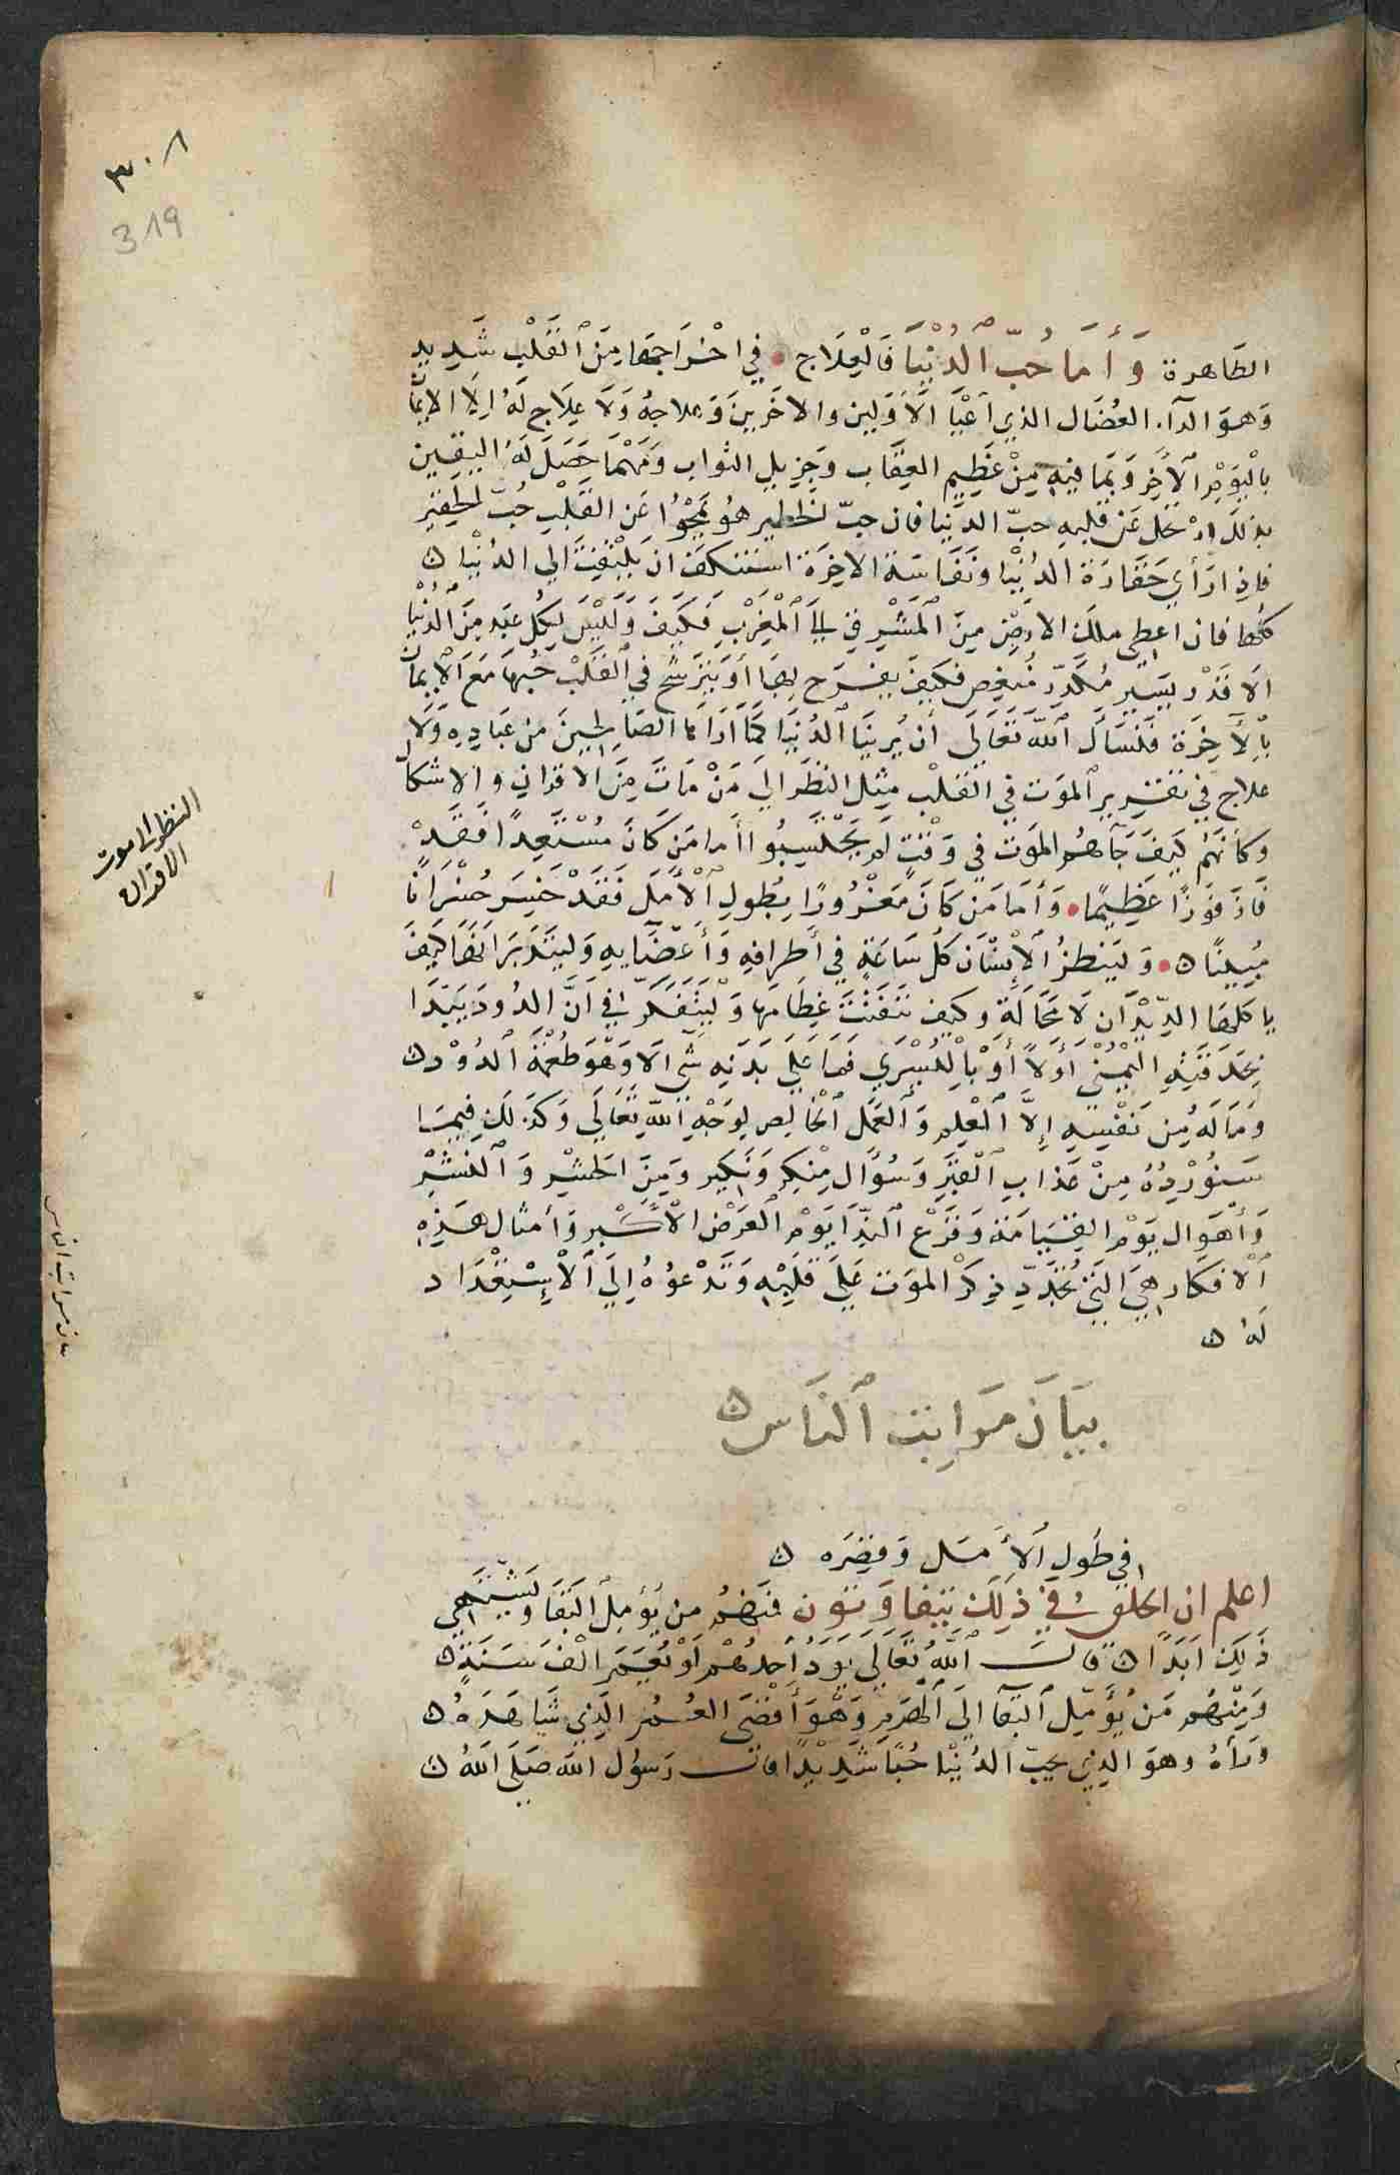 ٣٠٨
319
الطَاهرة وَأَمَا حُبّ ٱلدُنْيَا فَالْعِلَاج • في اخْرَاجهَا مِنَ ٱلقَلْب شَدِيد
وَهوَ الدآء العُضَال الذي أعْيَا الأَوَلين والاخَرِينَ وَعلاجهُ وَلَا عِلَاج لَهُ الا الايمَا
بالْيَوْم ٱلاخِر وَبمَا فيهِ مِنْ عَظِيم العِقَاب وَجَزِيل الثواب وَمَهْمَا حَصَلَ لَهُ اليَقين
بذلَكَ ارْتحَلَ عَن قلبهِ حبّ الدنيا فان حبّ الخطير هُوَ يَمْحُوا عَن القَلْب حُبّ الحَقير
فاذا رَأى حَقَارَة الدُنْيَا ونَفَاسَة الاخِرَة اسْتنكَفَ ان يَلْتفِتَ الى الدُنْيا ۞
كلها فان اعطى ملك الارض مِنَ المشْرِق الَى المغْرِب فَكَيفَ وَلَيْسَ لِكُل عَبَد مِنَ الدُنْيَا
الا قَدْر يَسِير مُكَدّر مُنغص فكيفَ يفرَح بهَا أو يَتَرَشَّح في القَلْب حُبهَا مَعَ الايمَا
بالآخِرَة فَنَسْأَل اللّه تعَالَى أن يُرينَا الدُنيَا كمَا أَرَاهَا الصَالِحِينَ من عبَادِهِ وَلَا
علاج في تقْرير الموَت في القَلْب مِثل النظَر الى مَنْ مَاتَ مِنَ الاقران والاشكا
وكأنهُم كيَفَ جَآهُم الموَت في وَقْت لَم يَحْتَسِبُوا أَما مَن كَانَ مُسْتَعِدًا فَقَدْ
فَازَ فَوزًا عَظِيمًا • وَأَما مَن كَانَ مَغْرُورًا بطُول الأَمَل فَقَدْ خَسِرَ خُسْرَانًا
مُبِينًا ۞ • وَلينظُر الإنسَان كُل سَاعَة في أطرافِهِ وَأَعضَايهِ وَليتَدَبَر انهَا كيَفَ
ياكلهَا الدِيدَان لَا محَالَة وكيف تتَفَتت عِظَامهَا وَليَتَفَكر في أنَّ الدُود يَبدَا
بحَدقَتِهِ اليمْنى أَولاً أَوْ باليُسْرَى فَمَا عَلى بَدَنِهِ شَى الا وَهوَ طُعْمَة الدُوْد ۞
وَمَا لَه مِن نَفْسِهِ إلَّا العِلم وَالعَمَل الخَالِص لِوَجْهِ اللّه تعَالَى وَكذَلَك فيمَا
سَنُورِدُهُ مِنْ عَذاب القَبْر وَسُؤَال مُنْكر وَنكِير وَمِنَ الحشْر وَالنشْر
وَأَهْوَال يَوْم القيَامَة وَفَزَع النِدَا يَوْم العَرْض الأكْبر وَأمثال هَذِهِ
الأفكَار هِيَ التي تُجَدّد ذِكرْ الموَت عَلَى قَلْبِهِ وَتَدْعُوهُ إلَى الاسْتِعْدَاد
لَهُ ۞
بيَان مَراتب النَاس ۞
في طُول الأَمَل وَقصَره ۞
اعلم ان الخلق في ذَلك يَتَفَاوَتون فَمنهُم من يُؤمل البَقَا وَيشْتَهي
ذَلِكَ أبَدًا ۞ قال اللّهُ تعَالَى يَوَدُ أَحدُهُمْ لَوْ يُعَمَر أَلْف سَنَةٍ ۞
وَمِنْهُم مَن يُؤَمّل البَقَا الَى الهَرَم وَهْوَ أَقْصَى العُمُر الَذِي شَاهَدَهُ ۞
وَرآهُ وهوَ الذِي يحِبّ الدُنْيَا حُبًا شَدِيْدًا قال رَسُول الله صَلى اللهُ ۞
النظر الى موت
الاقران
بيان مراتب الناس